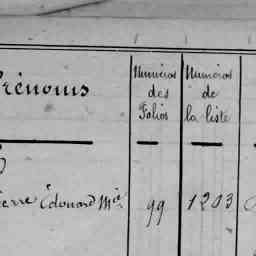 Prénoms
Numéros des Folios
Numéros de la liste
Pierre Édouard Mie
99
1203